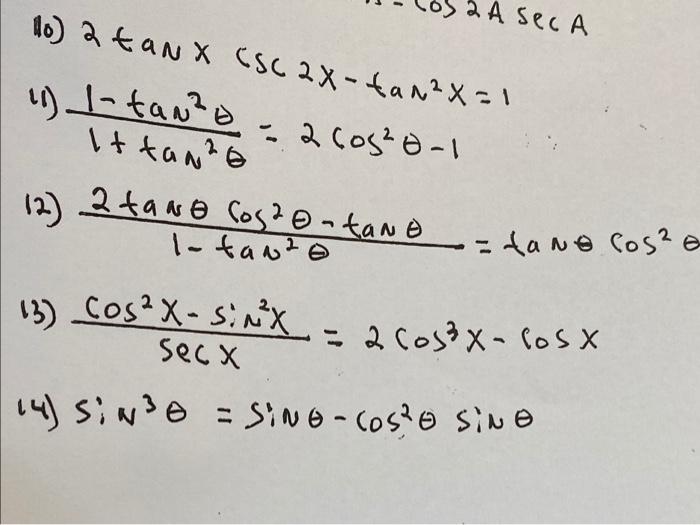 - cos 2A sec A
10) 2 tan x csc 2x - tan²x = 1
11) 1 - tan²θ / 1 + tan²θ = 2 cos²θ - 1
12) 2 tan θ cos²θ - tan θ / 1 - tan²θ = tan θ cos²θ
13) cos²x - sin²x / sec x = 2 cos³x - cos x
14) sin³θ = sin θ - cos²θ sin θ